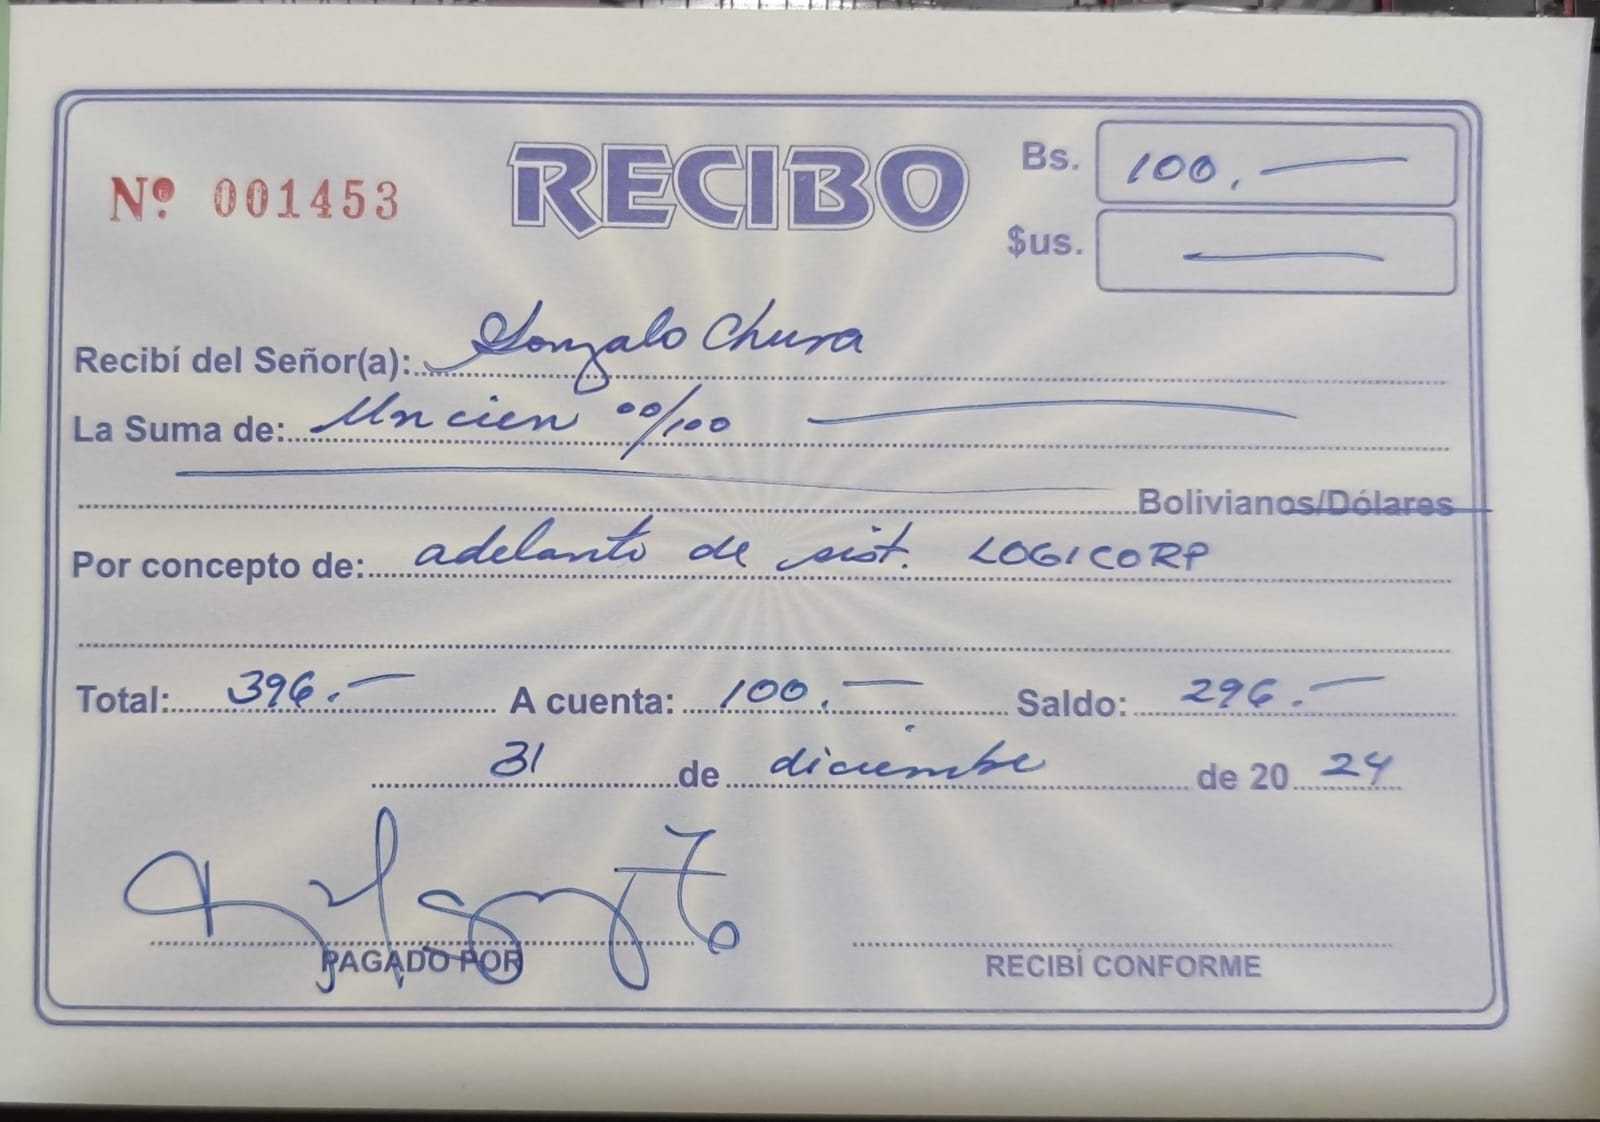 Nº 001453
RECIBO
Bs. 100.
$us.
Recibí del Señor(a): Gonzalo Chura
La Suma de: Un cien 00/100
Bolivianos/Dólares
Por concepto de: adelanto de sist. LOGICORP
Total: 396. A cuenta: 100. Saldo: 296.
31 de diciembre de 20 24
PAGADO POR RECIBÍ CONFORME